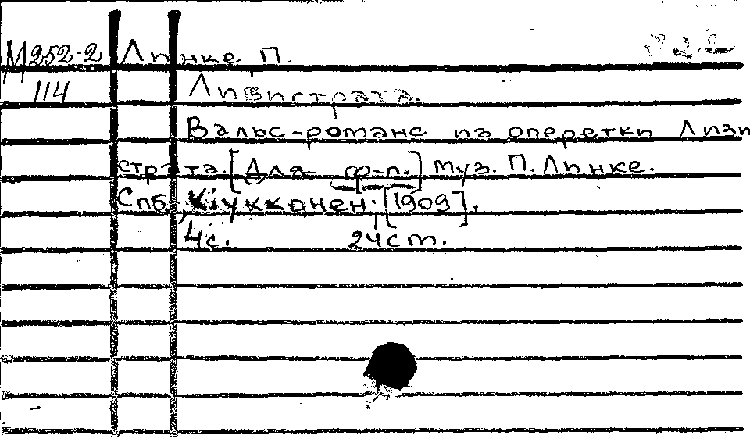 М 252-2 Линке, П.
114 Лизистрата.
Вальс-романс из оперетки Лизи
страта [Для ф-п.] муз. П. Линке.
Спб, Киукконен, [1909].
4 с. 24 ст.